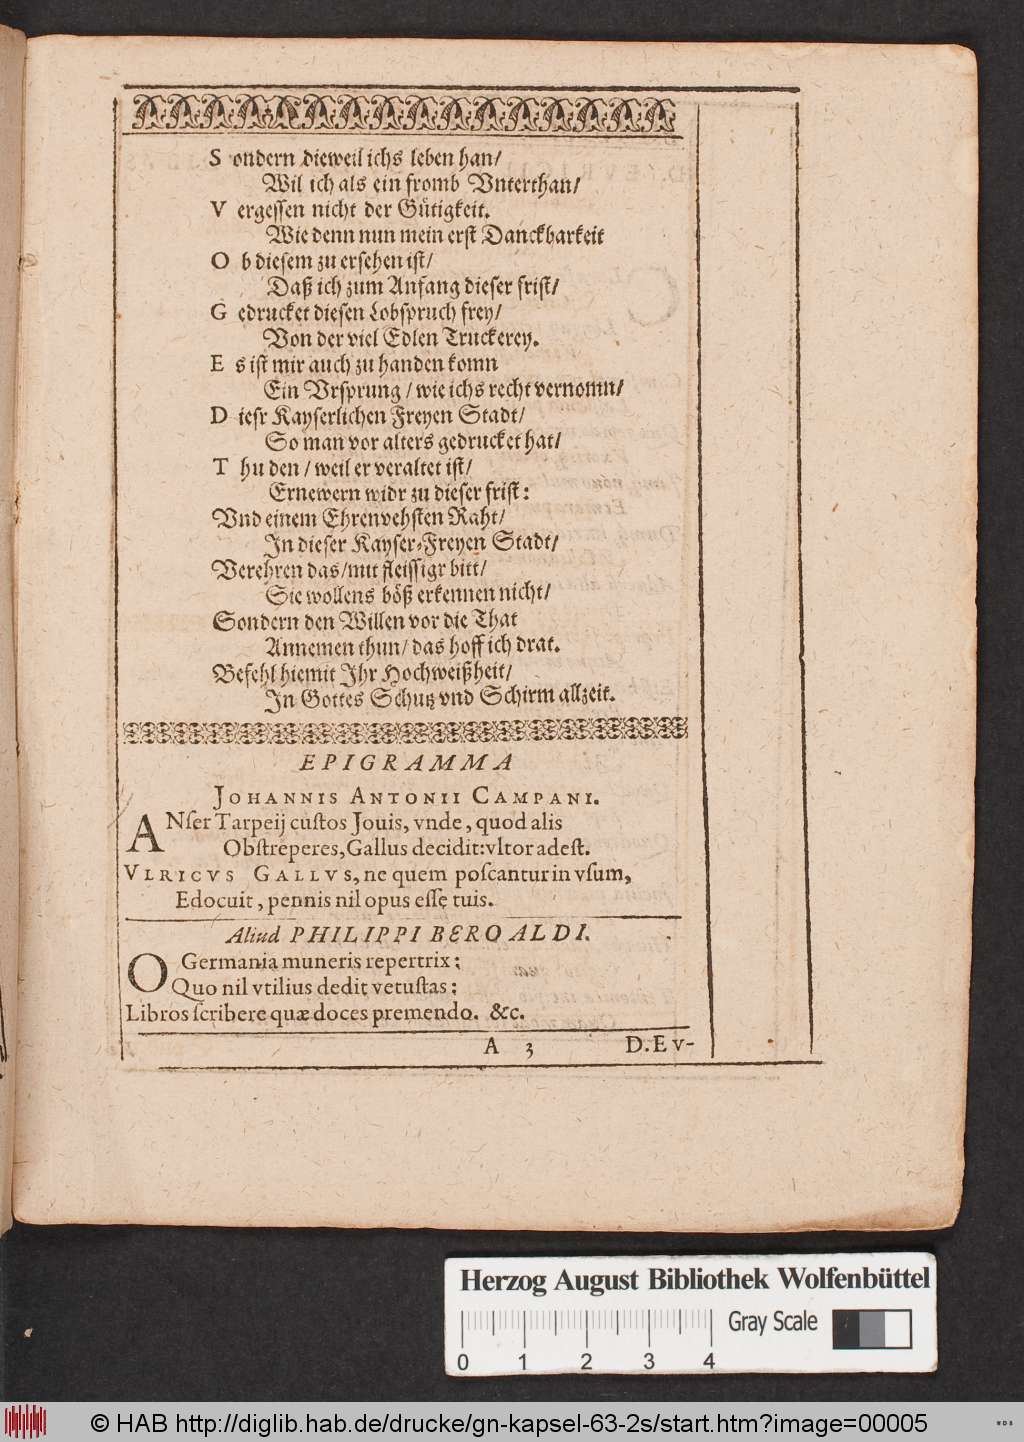 Sondern dieweil ichs leben han/
Wil ich als ein fromb Vnterthan/
Vergessen nicht der Gütigkeit.
Wie denn nun mein erst Danckbarkeit
Ob diesem zu ersehen ist/
Daß ich zum Anfang dieser frist/
Gedrucket diesen Lobspruch frey/
Von der viel Edlen Truckerey.
Es ist mir auch zu handen komn
Ein Vrsprung / wie ichs recht vernomn/
Diesr Kayserlichen Freyen Stadt/
So man vor alters gedrucket hat/
Thu den / weil er veraltet ist/
Ernewern widr zu dieser frist:
Vnd einem Ehrenvehsten Raht/
In dieser Kayser-Freyen Stadt/
Verehren das/mit fleissigr bitt/
Sie wollens böß erkennen nicht/
Sondern den Willen vor die That
Annemen thun/ das hoff ich drat.
Befehl hiemit Ihr Hochweißheit/
In Gottes Schutz vnd Schirm allzeit.
EPIGRAMMA
JOHANNIS ANTONII CAMPANI.
ANſer Tarpeij cuſtos Jouis, vnde, quod alis
Obſtreperes, Gallus decidit: vltor adeſt.
VLRICVS GALLVS, ne quem poſcantur in vſum,
Edocuit, pennis nil opus eſſe tuis.
Aliud PHILIPPI BEROALDI.
O Germania muneris repertrix;
Quo nil vtilius dedit vetuſtas:
Libros ſcribere quæ doces premendo. &c.
A 3 D.Ev-
Herzog August Bibliothek Wolfenbüttel
Gray Scale
0 1 2 3 4
© HAB http://diglib.hab.de/drucke/gn-kapsel-63-2s/start.htm?image=00005